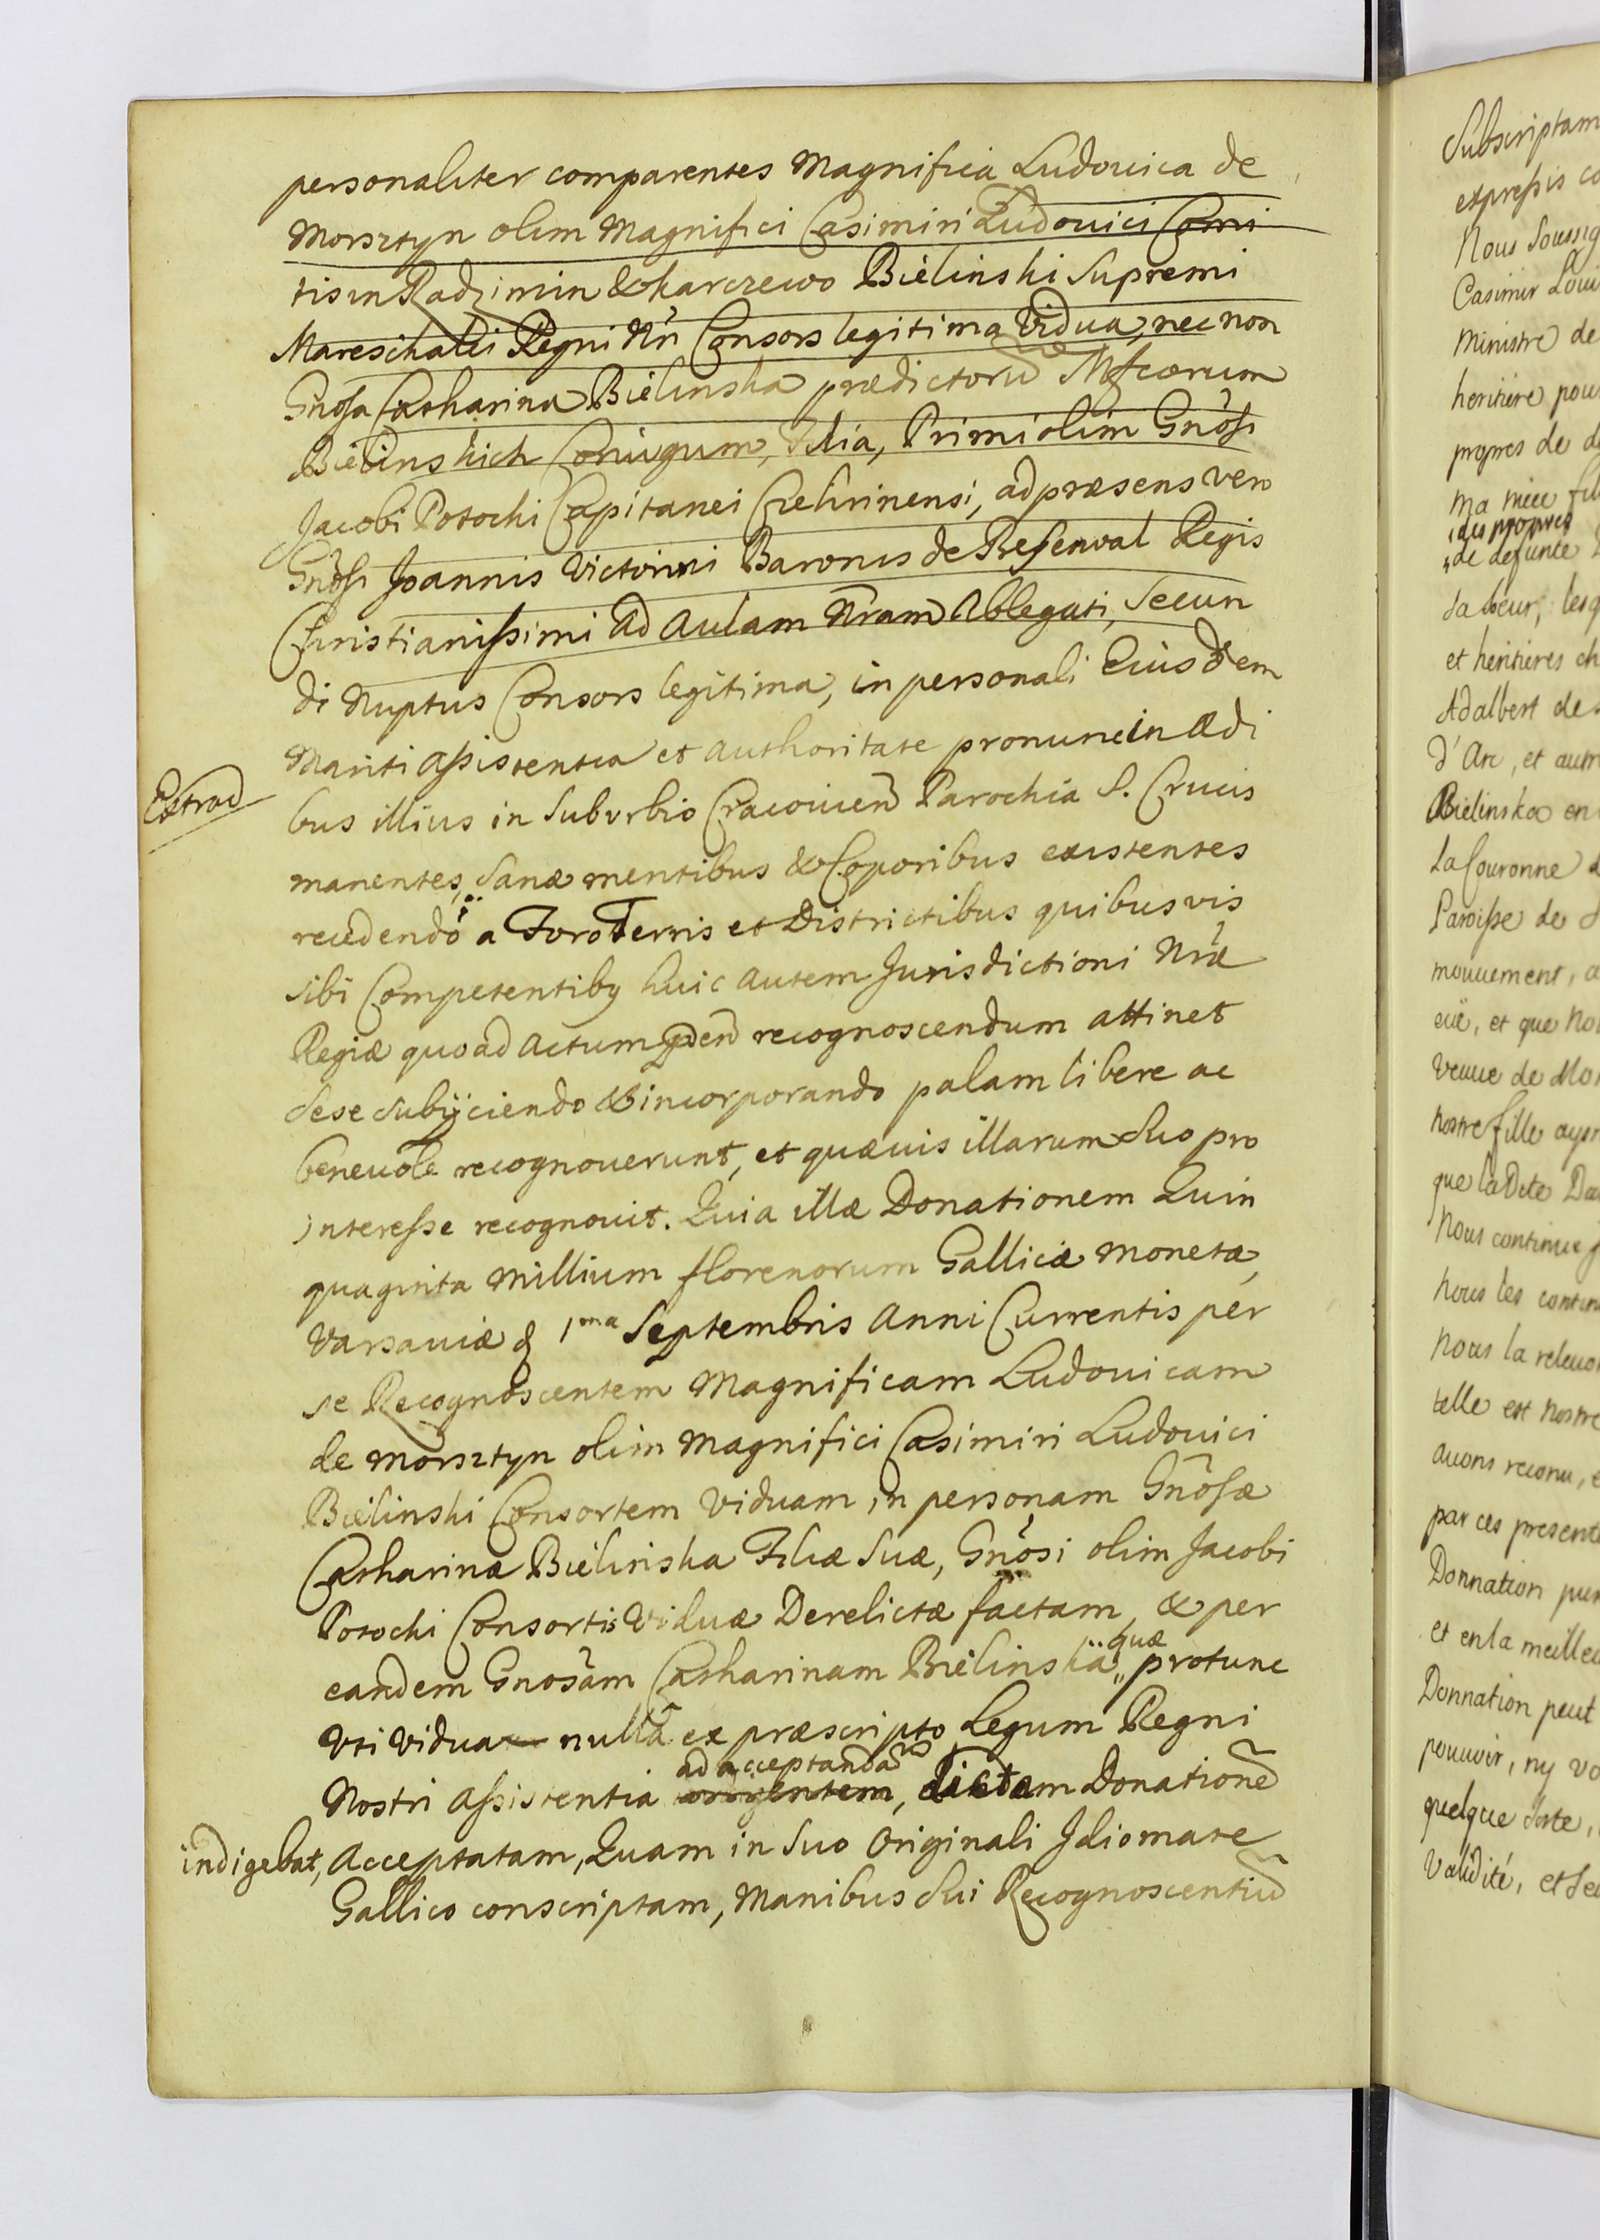 personaliter comparentes Magnifica Ludouica de
Morsztyn olim Magnifici Casimiri Ludouici Comi
tis in Radzimin & Karczewo Bielinski Supremi
Mareschalci Regni Nri Consors legitima Vidua, nec non
Gnosa Catharina Bielinska prædictorũ Mfcorum
Bielinskich Coniugum, Filia, Primi olim Gnosi
Jacobi Potocki Capitanei Czehrinensi, ad præsens vero
Gnosi Joannis Victorini Baronis de Besenval Regis
Christianissimi ad Aulam Nram Ablegati, Secun
di Nuptus Consors legitima, in personali Eiusdem
Mariti assistentia et authoritate pro nunc in Ædi
Extrad
bus illius in Suburbio Cracouien Parochia S. Crucis
manentes, Sanæ mentibus & Coporibus existentes
recedendo a Foro Terris et Districtibus quibusvis
sibi Competentiby huic autem Jurisdictioni Nræ
Regiæ quoad actum pnden recognoscendum attinet
sese subijciendo & incorporando palam libere ac
beneuole recognouerunt, et quæuis illarum suo pro
interesse recognouit. Quia illæ Donationem Quin
quaginta Millium florenorum Gallicæ monetæ,
Varsauiæ d 1ma Septembris Anni Currentis per
se Recognoscentem Magnificam Ludouicam
de Morsztyn olim Magnifici Casimiri Ludouici
Bielinski Consortem Viduam, in personam Gnosæ
Catharinæ Bielinska Filiæ Suæ, Gnosi olim Jacobi
Potocki Consortis Viduæ Derelictæ factam, & per
eandem Gnosam Catharinam Bielinska quæ protunc
Vti Vidua nulla ex præscripto Legum Regni
Nostri Assistentia ad acceptandã, dictam Donationẽ
indigebat, Acceptatam, Quam in Suo Originali Idiomate
Gallico conscriptam, Manibus Sui Recognoscentiũ
Subscriptam
expressis
Nous Soussig
Casimir Loui
Ministre de
heritiere pou
propres de
ma niece
des propres
de defunte
sa soeur, lesq
et heritieres ch
Adalbert de
d'Arc, et autr
Bielinska en
la Couronne
Paroisse de
mouuement,
eüe, et que No
veuue de Mor
nostre fille aya
que la Dite Da
Nous continue
nous les contin
nous la releuo
telle est nostre
auons reconu,
par ces present
Donnation pur
et en la meilleu
Donnation peut
pouuoir, ny vo
quelque sorte,
Validité, et se